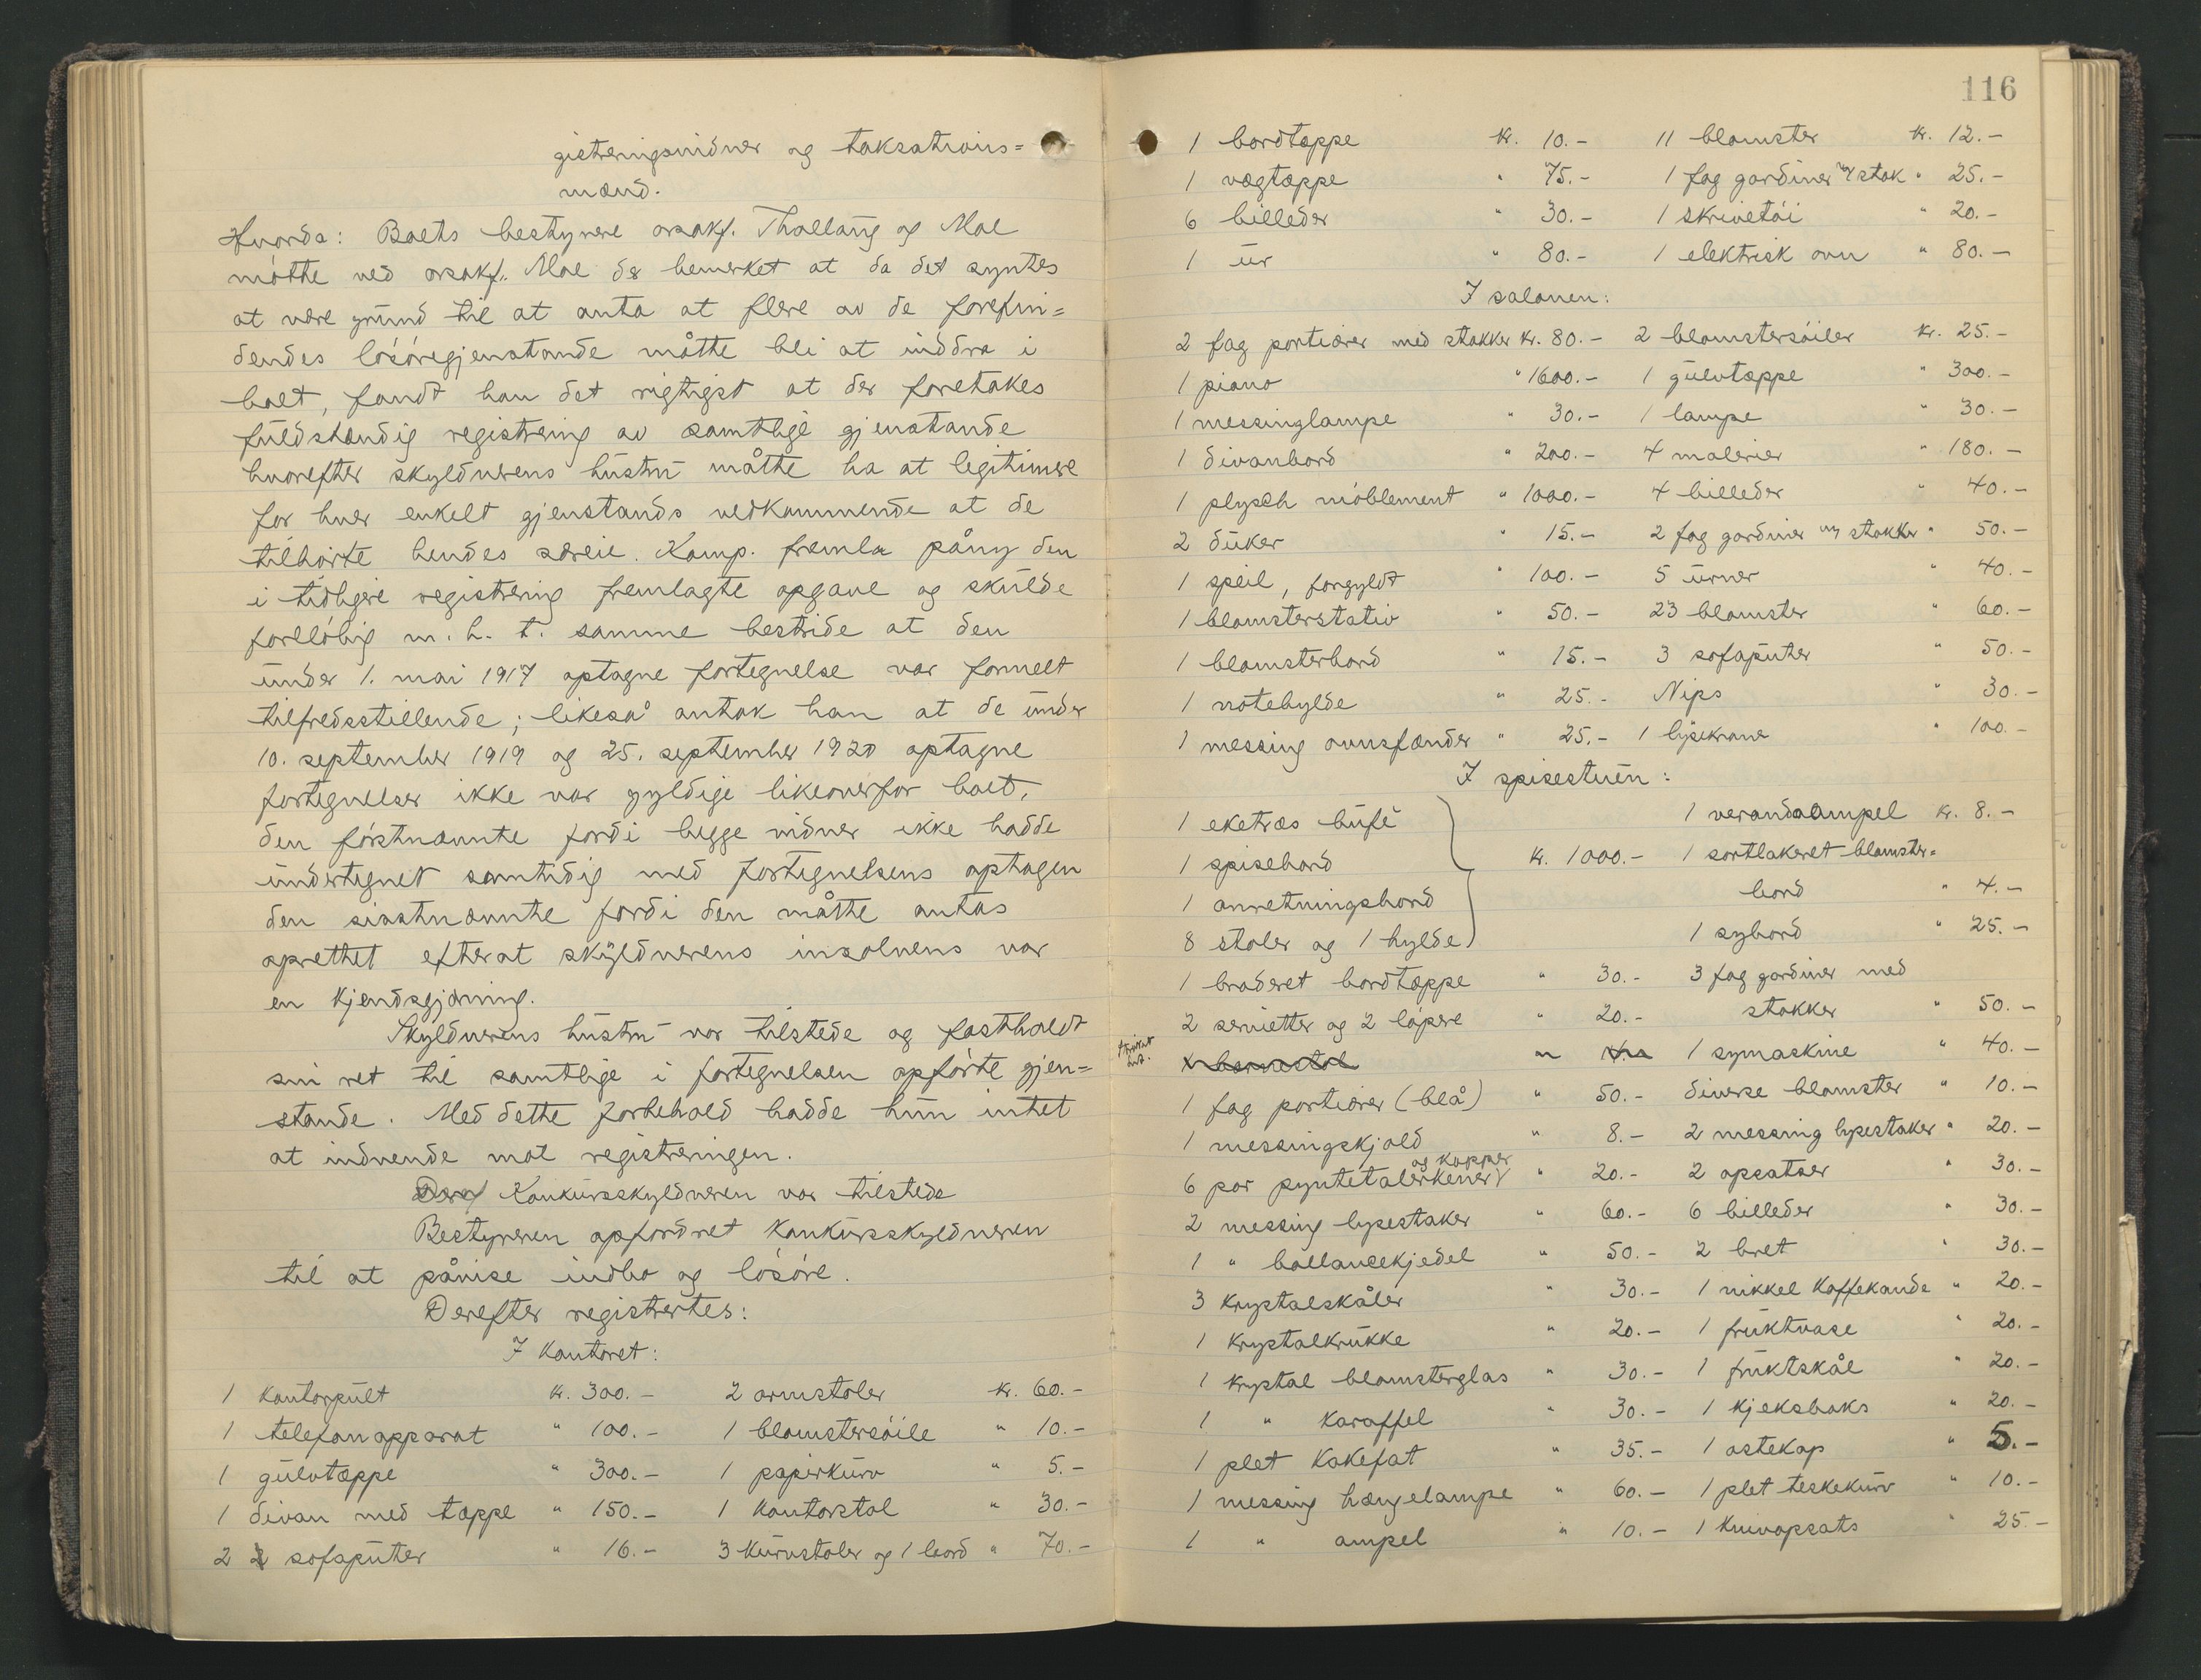 gistreringsvidner og taksations=
mænd.
Hvorda: Boets bestyrere orsakf. Thallaug og Moe
møtte ved orsakf. Moe de bemerket at da det syntes
at være grund til at anta at flere av de forefin=
dendes løsøregjenstande måtte bli at inddra i
boet, fandt han det rigtigst at der foretakes
fuldstændig registrering av samtlige gjenstande
hvorefter skyldnerens hustru måtte ha at legitimere
for hver enkelt gjenstands vedkommende at de
tilhørte hendes særeie. Komp. fremla påny den
i tidligere registrering fremlagte opgave og skulde
foreløbig m. h. t. samme bestride at den
under 1. mai 1917 optagne fortegnelse var formelt
tilfredsstillende; likeså antok han at de under
10. september 1919 og 25. september 1920 optagne
fortegnelser ikke var gyldige likeoverfor boet,
den førstnævnte fordi begge vidner ikke hadde
undertegnet samtidig med fortegnelsens optagen
den sisstnævnte fordi den måtte antas
oprettet efterat skyldnerens insolvens var
en kjendsgjerning.
Skyldnerens hustru var tilstede og fastholdt
sin ret til samtlige i fortegnelsen opførte gjen=
stande. Med dette forbehold hadde hun intet
at indvende mot registreringen.
Konkursskyldneren var tilstede
Bestyreren opfordret konkursskyldneren
til at påvise indbo og løsøre.
Derefter registrertes:
I kontoret:
1 kontorpult kr. 300.- 2 armstoler kr. 60.-
1 telefonapparat " 100.- 1 blomstersøile " 10.-
1 gulvtæppe " 300.- 1 papirkurv " 5.-
1 divan med tæppe " 150.- 1 kontorstol " 30.-
2 sofaputer " 16.- 3 kurvstoler og 1 bord " 70.-
116
1 bordtæppe kr. 10.- 11 blomster kr. 12.-
1 vægtæppe " 75.- 1 fag gardiner m/ stok " 25.-
6 billeder " 30.- 1 skrivetøi " 20.-
1 ur " 80.- 1 elektrisk ovn " 80.-
I salonen:
2 fag portierer med stokker kr. 80.- 2 blomstersøiler kr. 25.-
1 piano " 1600.- 1 gulvtæppe " 300.-
1 messinglampe " 30.- 1 lampe " 30.-
1 divanbord " 200.- 4 malerier " 180.-
1 plysch møblement " 1000.- 4 billeder " 40.-
2 duker " 15.- 2 fag gardiner m/ stokker " 50.-
1 speil, forgyldt " 100.- 5 urner " 40.-
1 blomsterstativ " 50.- 23 blomster " 60.-
1 blomsterbord " 15.- 3 sofaputer " 50.-
1 notehylde " 25.- Nips " 30.-
1 messing ovnsfænder " 25.- 1 lysekrone " 100.-
I spisestuen:
1 eketræs bufè 1 verandaampel kr. 8.-
1 spisebord kr. 1000.- 1 sortlakeret blomster=
1 anretningsbord bord " 4.-
8 stoler og 1 hylde 1 sybord " 25.-
1 broderet bordtæppe " 30.- 3 fag gardiner med
2 servietter og 2 løpere " 20.- stokker " 50.-
1 barnestol 1 symaskine " 40.-
1 fag portierer (blå) " 50.- diverse blomster " 10.-
1 messingskjold " 8.- 2 messing lysestaker " 20.-
6 par pyntetalerkener og kopper " 20.- 2 opsatser " 30.-
2 messing lysestaker " 60.- 6 billeder " 30.-
1 " ballancekjedel " 50.- 2 bret " 30.-
3 krystalskåler " 30.- 1 nikkel kaffekande " 20.-
1 krystalkrukke " 20.- 1 fruktvase " 20.-
1 krystal blomsterglas " 30.- 1 fruktskål " 20.-
1 " karaffel " 30.- 1 kjeksboks " 20.-
1 plet kakefat " 35.- 1 ostekop " 5.-
1 messing hængelampe " 60.- 1 plet teskekurv " 10.-
1 " ampel " 10.- 1 knivopsats " 25.-